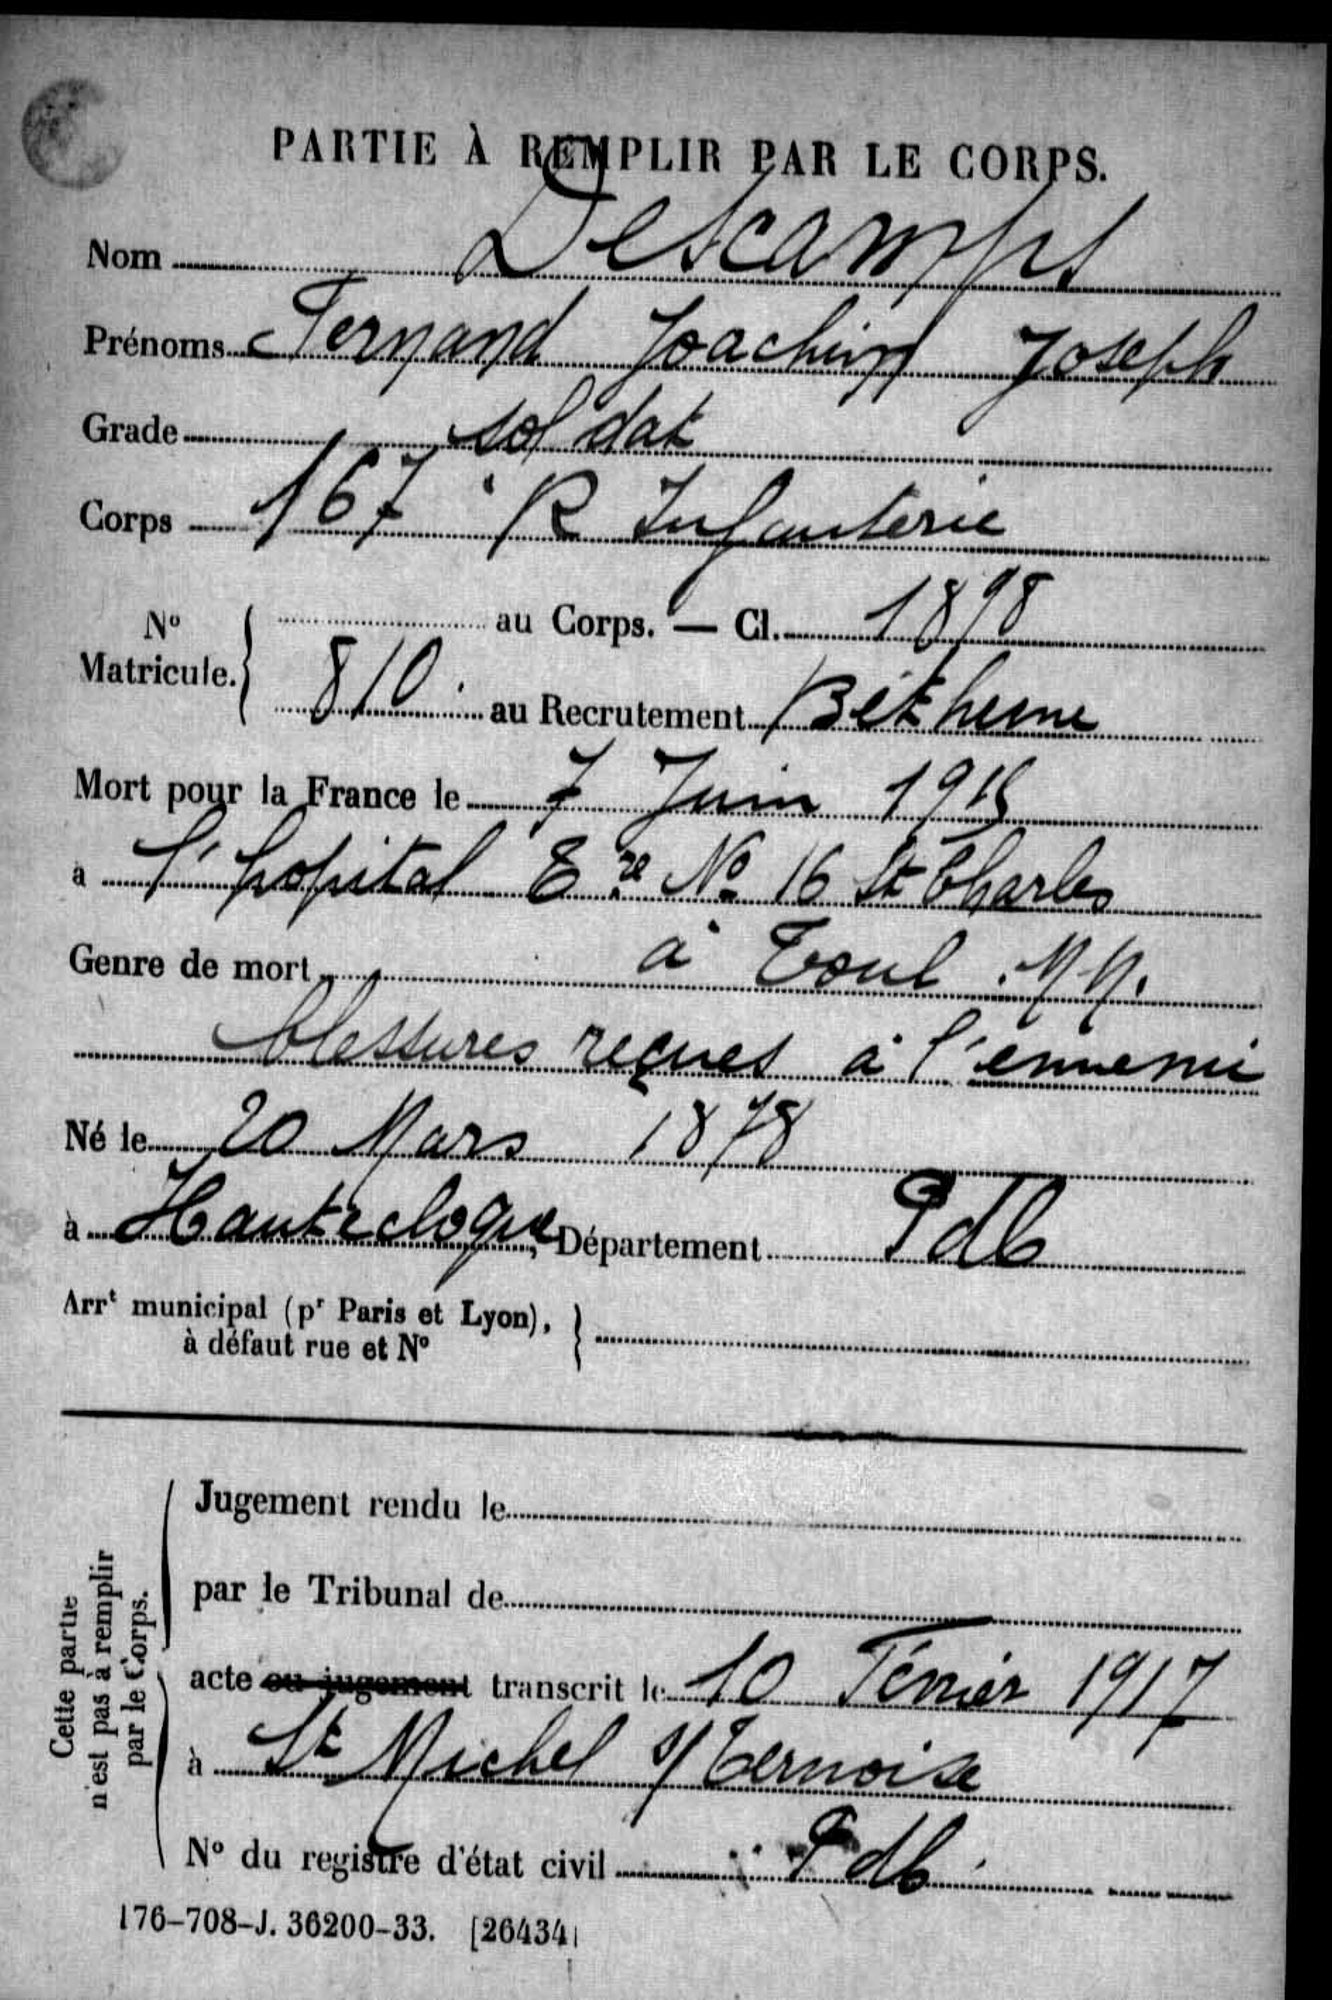 PARTIE À REMPLIR PAR LE CORPS.
Nom Descamps
Prénoms Fernand Joachim Joseph
Grade soldat
Corps 167e R Infanterie
N° Matricule. { au Corps. — Cl. 1898
810. au Recrutement Béthune
Mort pour la France le 7 Juin 1915
à l'hopital Ere No 16 St Charles
Genre de mort à Toul M M.
blessures reçues à l'ennemi
Né le 20 Mars 1878
à Hauteclogue, Département PdC
Arrt municipal (pr Paris et Lyon), }
à défaut rue et N°
Cette partie
n'est pas à remplir
par le Corps.
Jugement rendu le
par le Tribunal de
acte ou jugement transcrit le 10 Février 1917
à St Michel s/ Ternoise
N° du registre d'état civil PdC.
176-708-J. 36200-33. [26434]